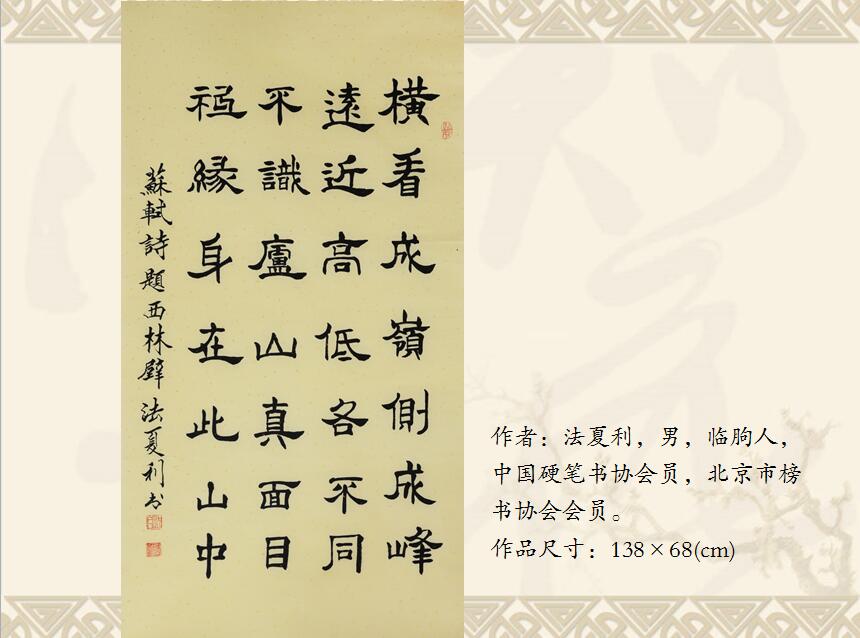 横看成嶺側成峰
遠近高低各不同
不識廬山真面目
祗緣身在此山中
蘇軾詩題西林壁 法夏利书
作者：法夏利，男，临朐人，
中国硬笔书协会员，北京市榜
书协会会员。
作品尺寸：138×68(cm)